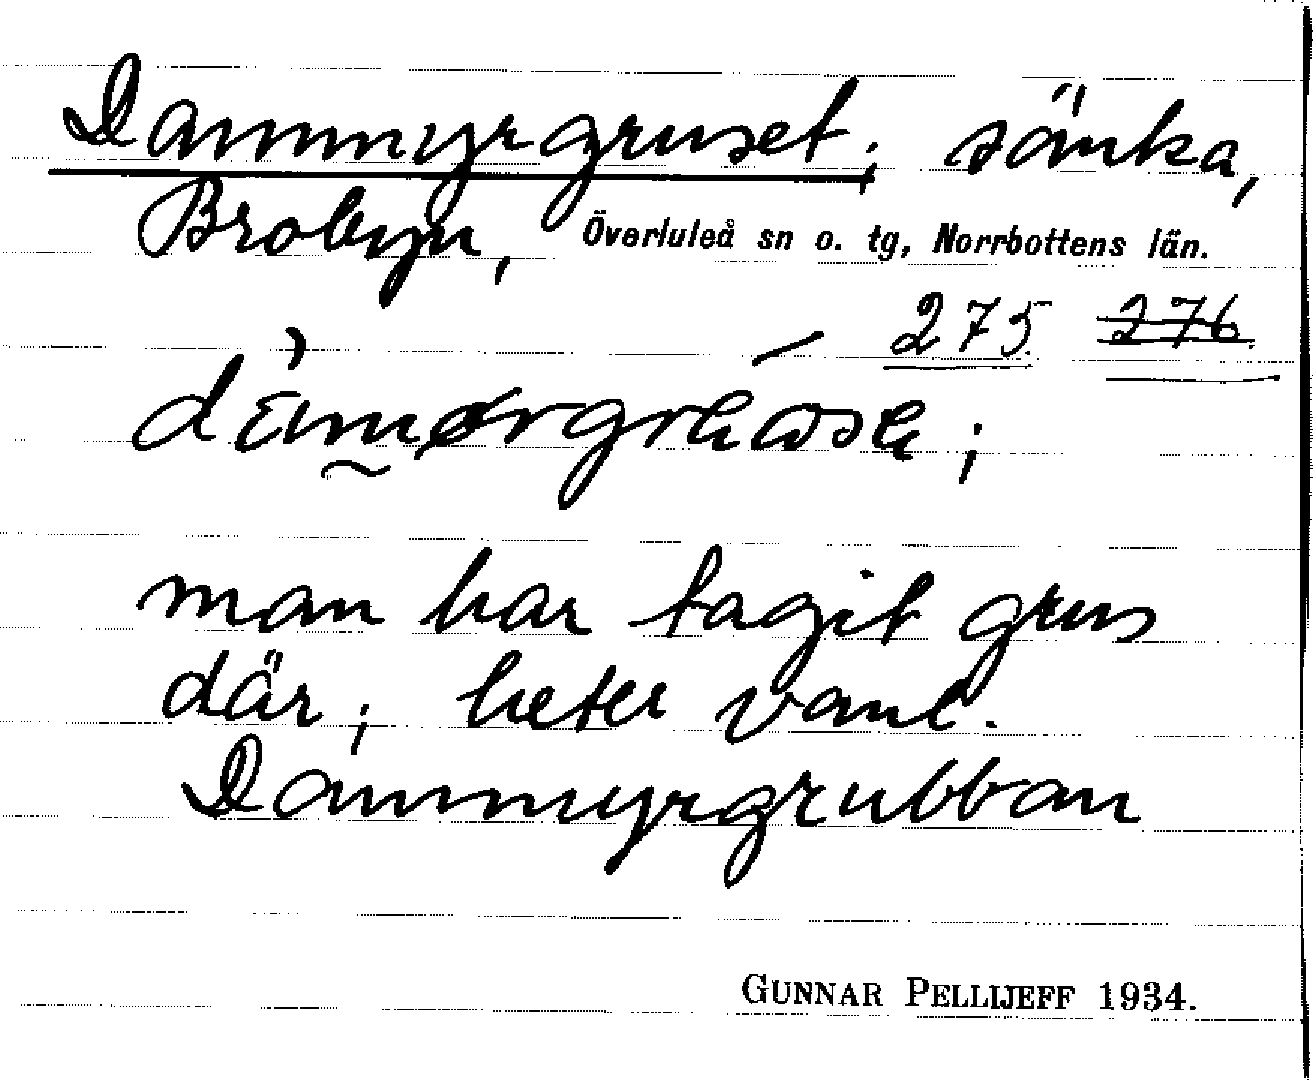 Dammyrgruset; sänka,
Brobyn, Överluleå sn o. tg, Norrbottens län.
275 276
man har tagit grus
där; heter vanl.
Dammyrgrubban
GUNNAR PELLIJEFF 1934.